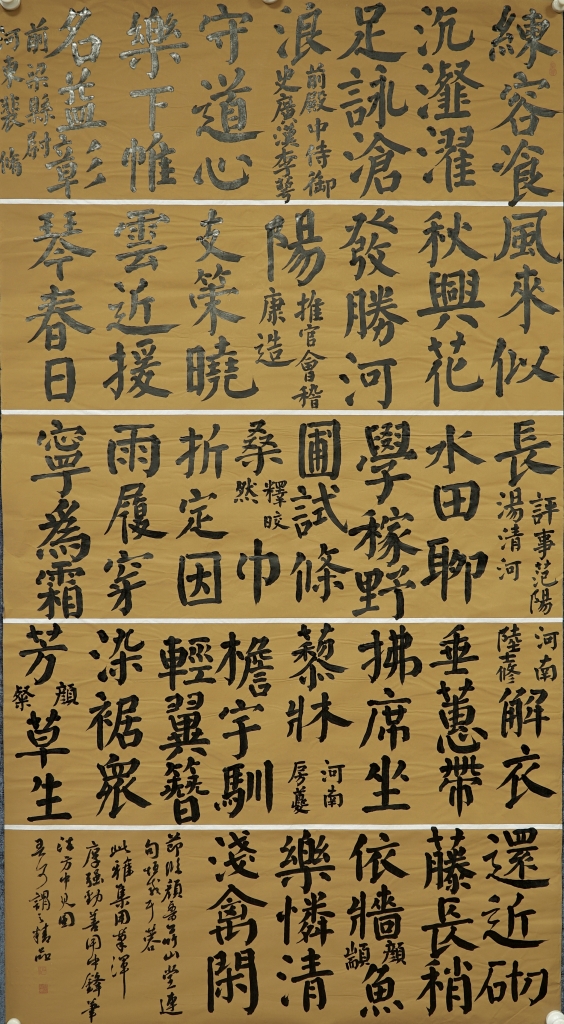 練容飡
沉瀣濯
足詠滄
浪
前殿中侍御
史廣漢李萼
守道心
樂下帷
名益彰
前梁縣尉
河東裴脩
風來似
秋興花
發勝河
陽
推官會稽
康造
支策曉
雲近援
琴春日
長
評事范陽
湯清河
水田聊
學稼野
圃試條
桑
釋皎
然
巾
折定因
雨履穿
寧爲霜
河南
陸士修
解衣
垂蕙帶
拂席坐
藜牀
河南
房夔
檐宇馴
輕翼簪
染裾衆
芳
顏
粲
草生
還近砌
藤長稍
依牆
顏
顓
魚
樂憐清
淺禽閑
節臨顏魯公竹山堂連
句
此雅集用筆渾
厚強勁善用中鋒筆
法方中見圓
可謂之精品